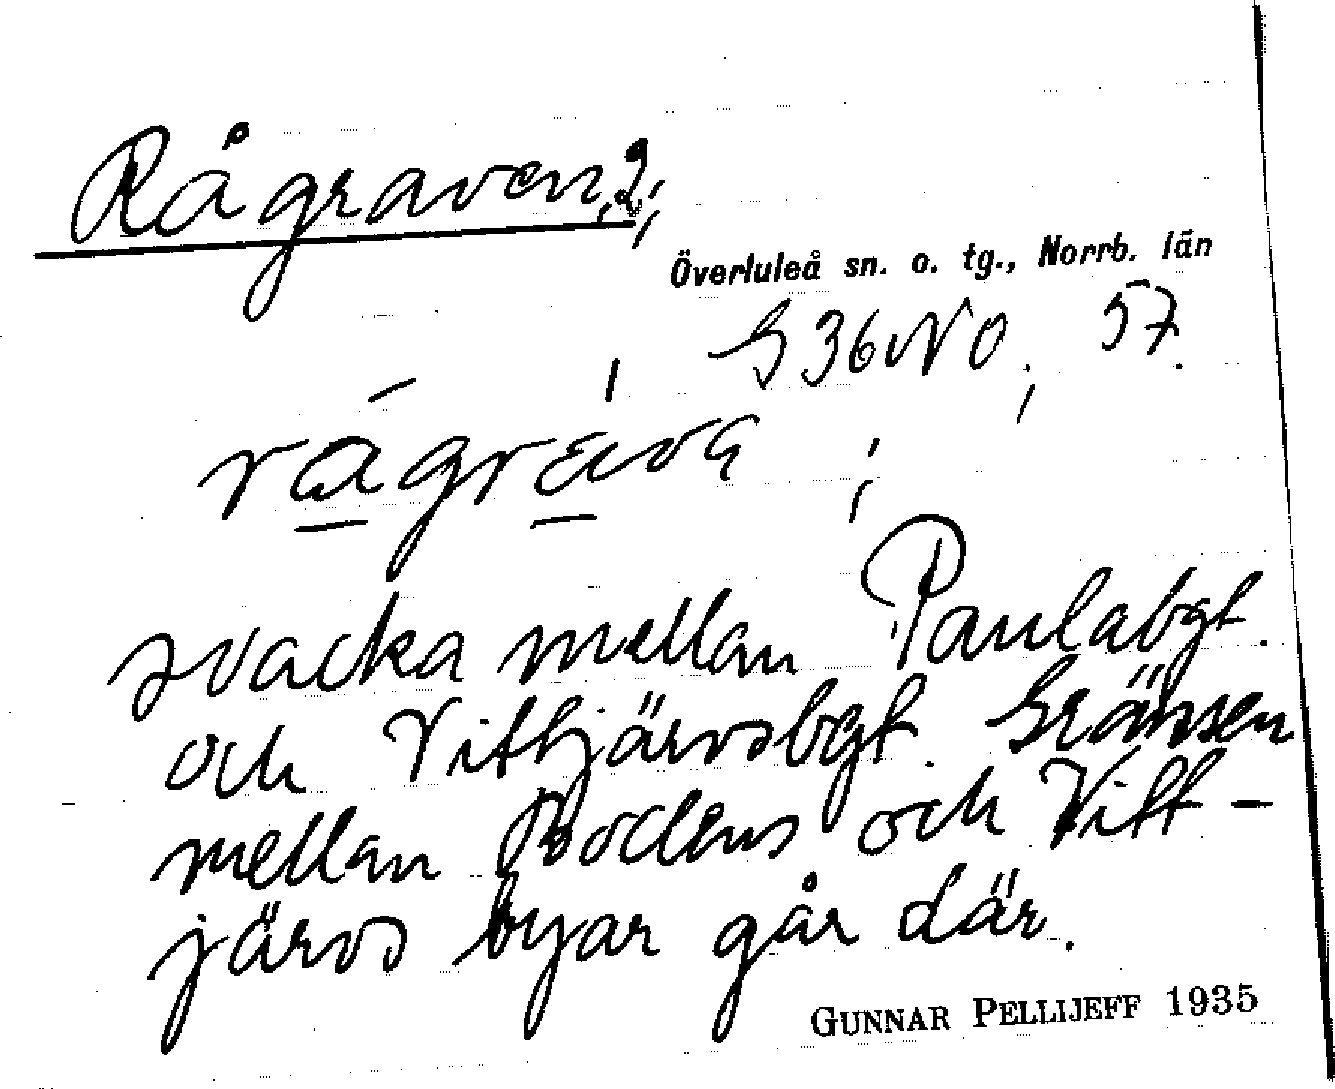 Rågraven, 2;
Överluleå sn. o. tg., Norrb. län
G 36 NO; 57.
svacka mellan Paulabgt.
och Vittjärvsbgt. Gränsen
mellan Bodens och Vitt-
järvs byar går där.
GUNNAR PELLIJEFF 1935